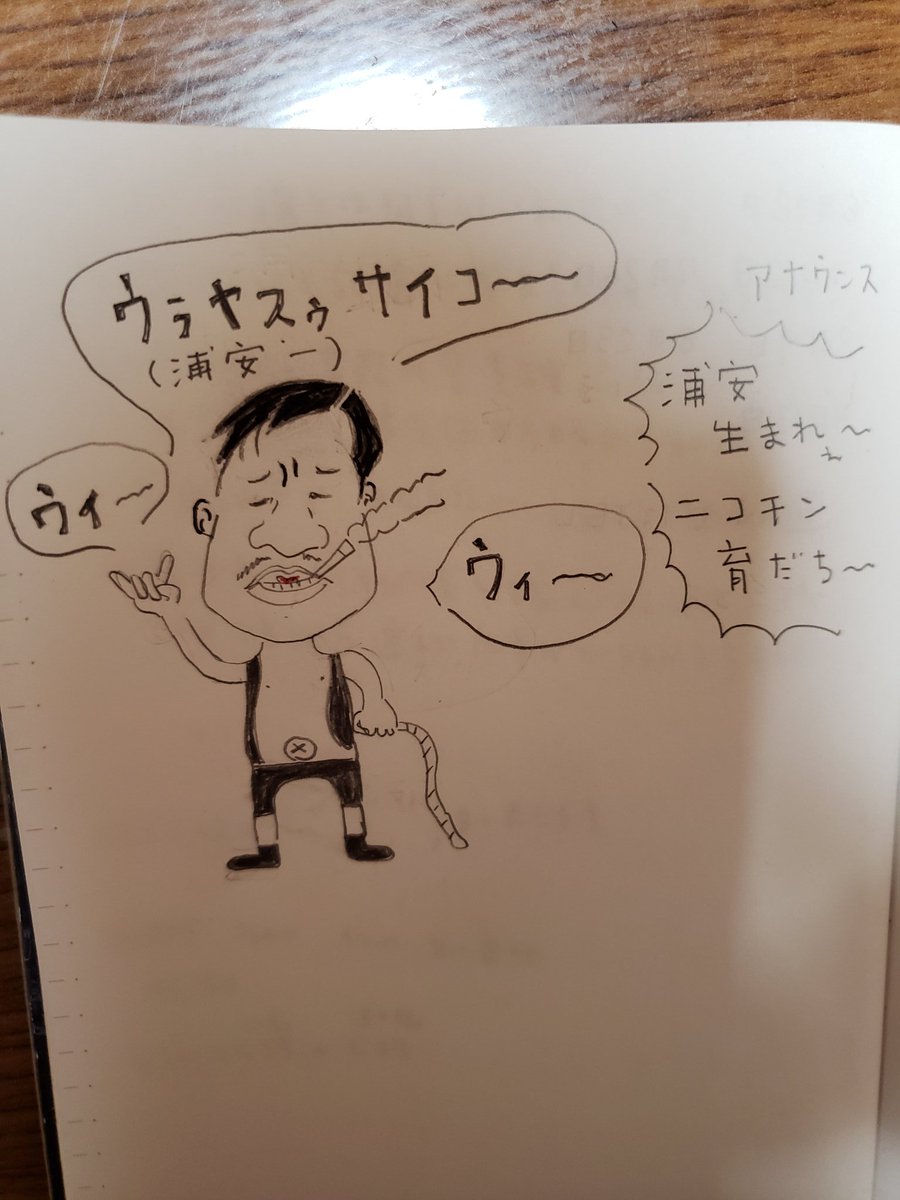 ウラヤスゥ サイコ〜〜
(浦安一)
ウィ〜
ウィ〜
アナウンス
浦安
生まれぇ〜
ニコチン
育だち〜